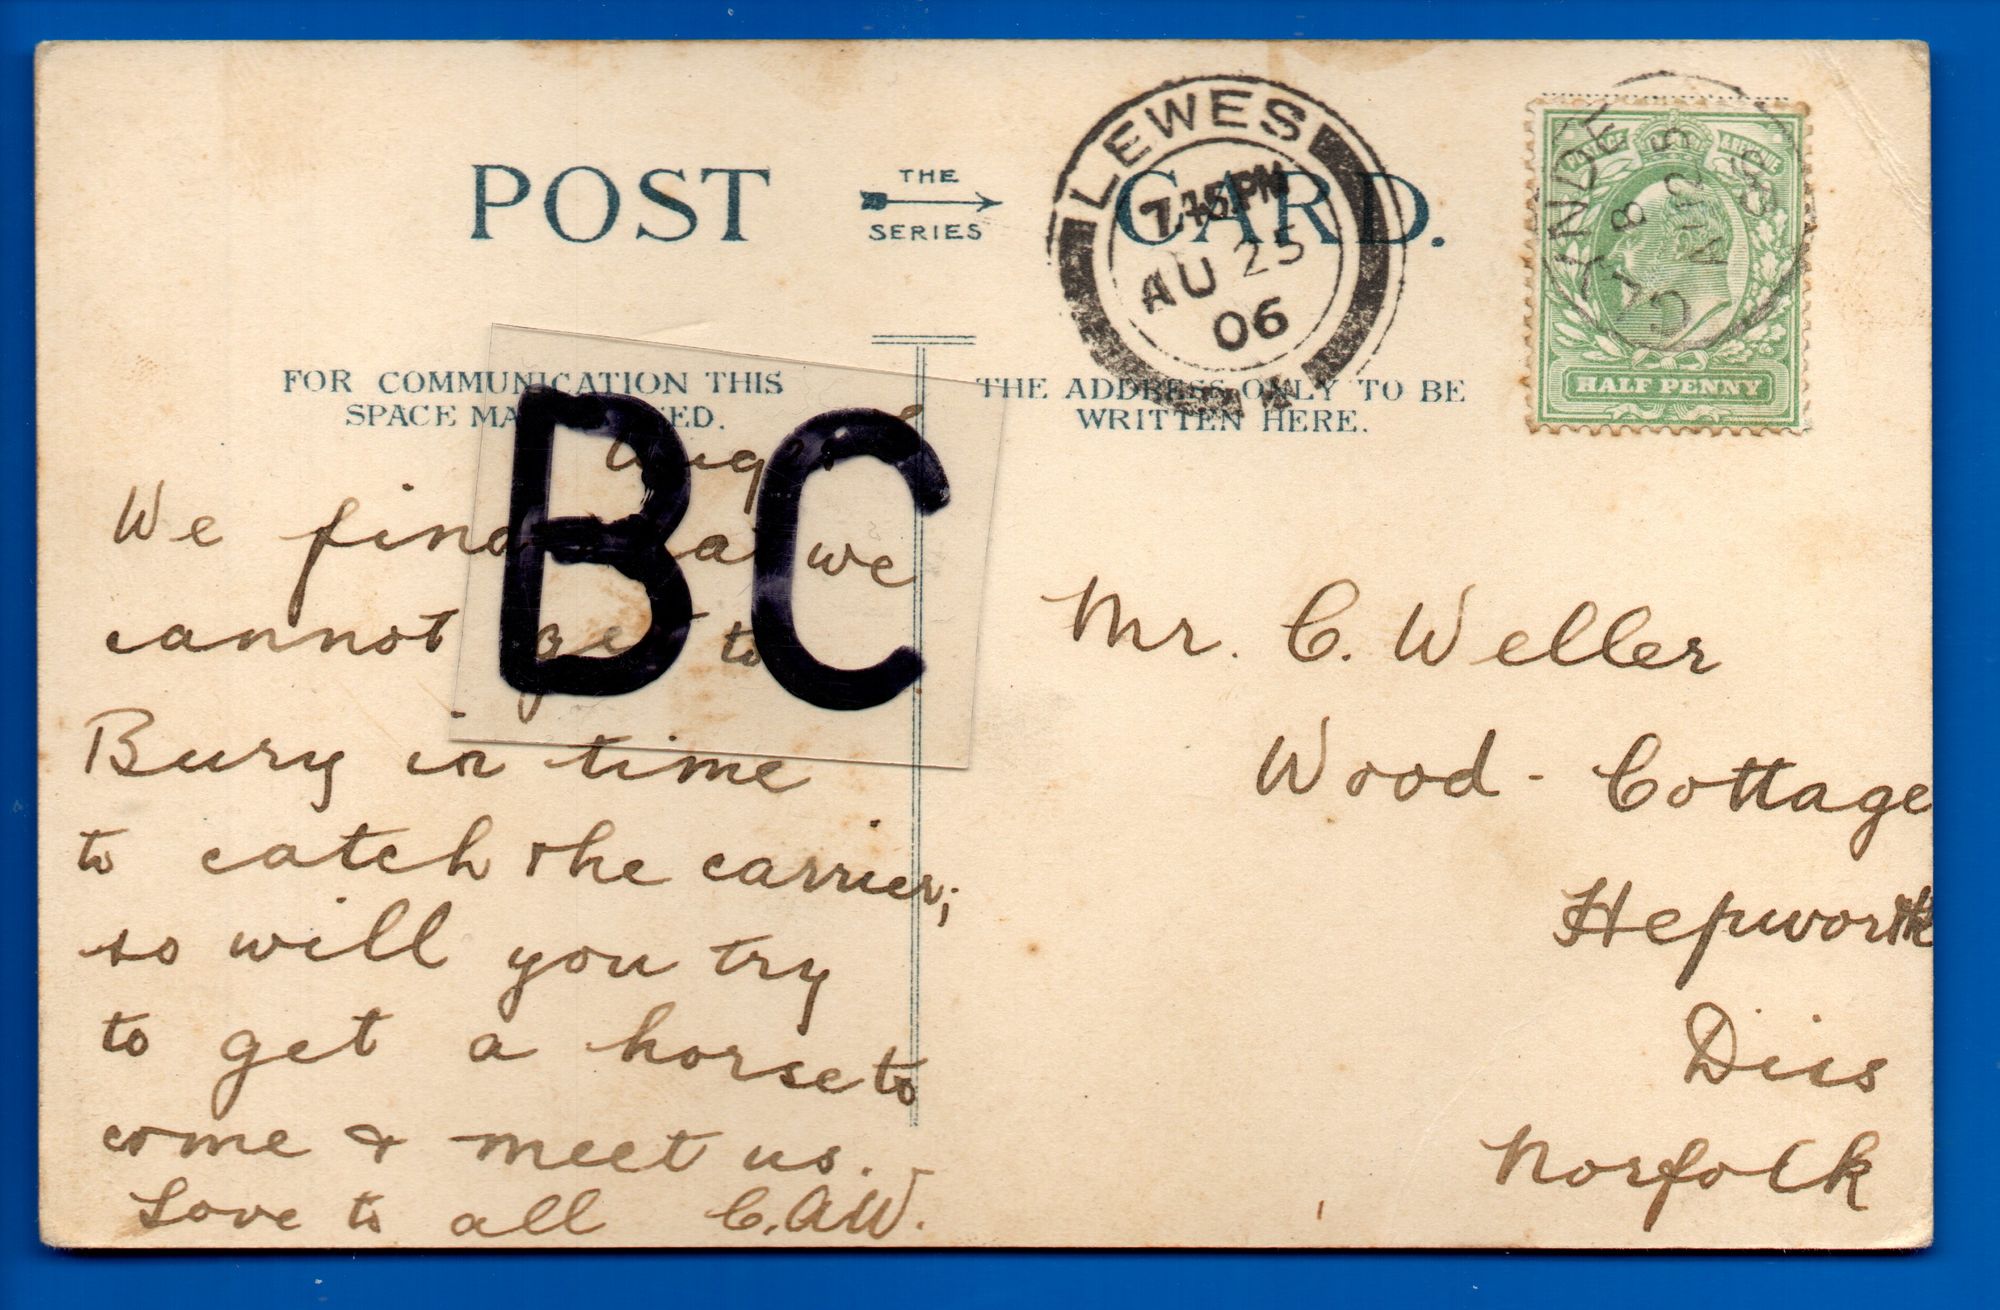 POST THE SERIES CARD.
LEWES
7.15PM
AU 25
06
HALF PENNY
FOR COMMUNICATION THIS
SPACE MA ED.
THE ADDRESS ONLY TO BE
WRITTEN HERE.
BC
We find we
cannot get to
Bury in time
to catch the carrier;
so will you try
to get a horse to
come & meet us.
Love to all C.A.W.
Mr. C. Weller
Wood - Cottage
Hepworth
Diis
Norfolk